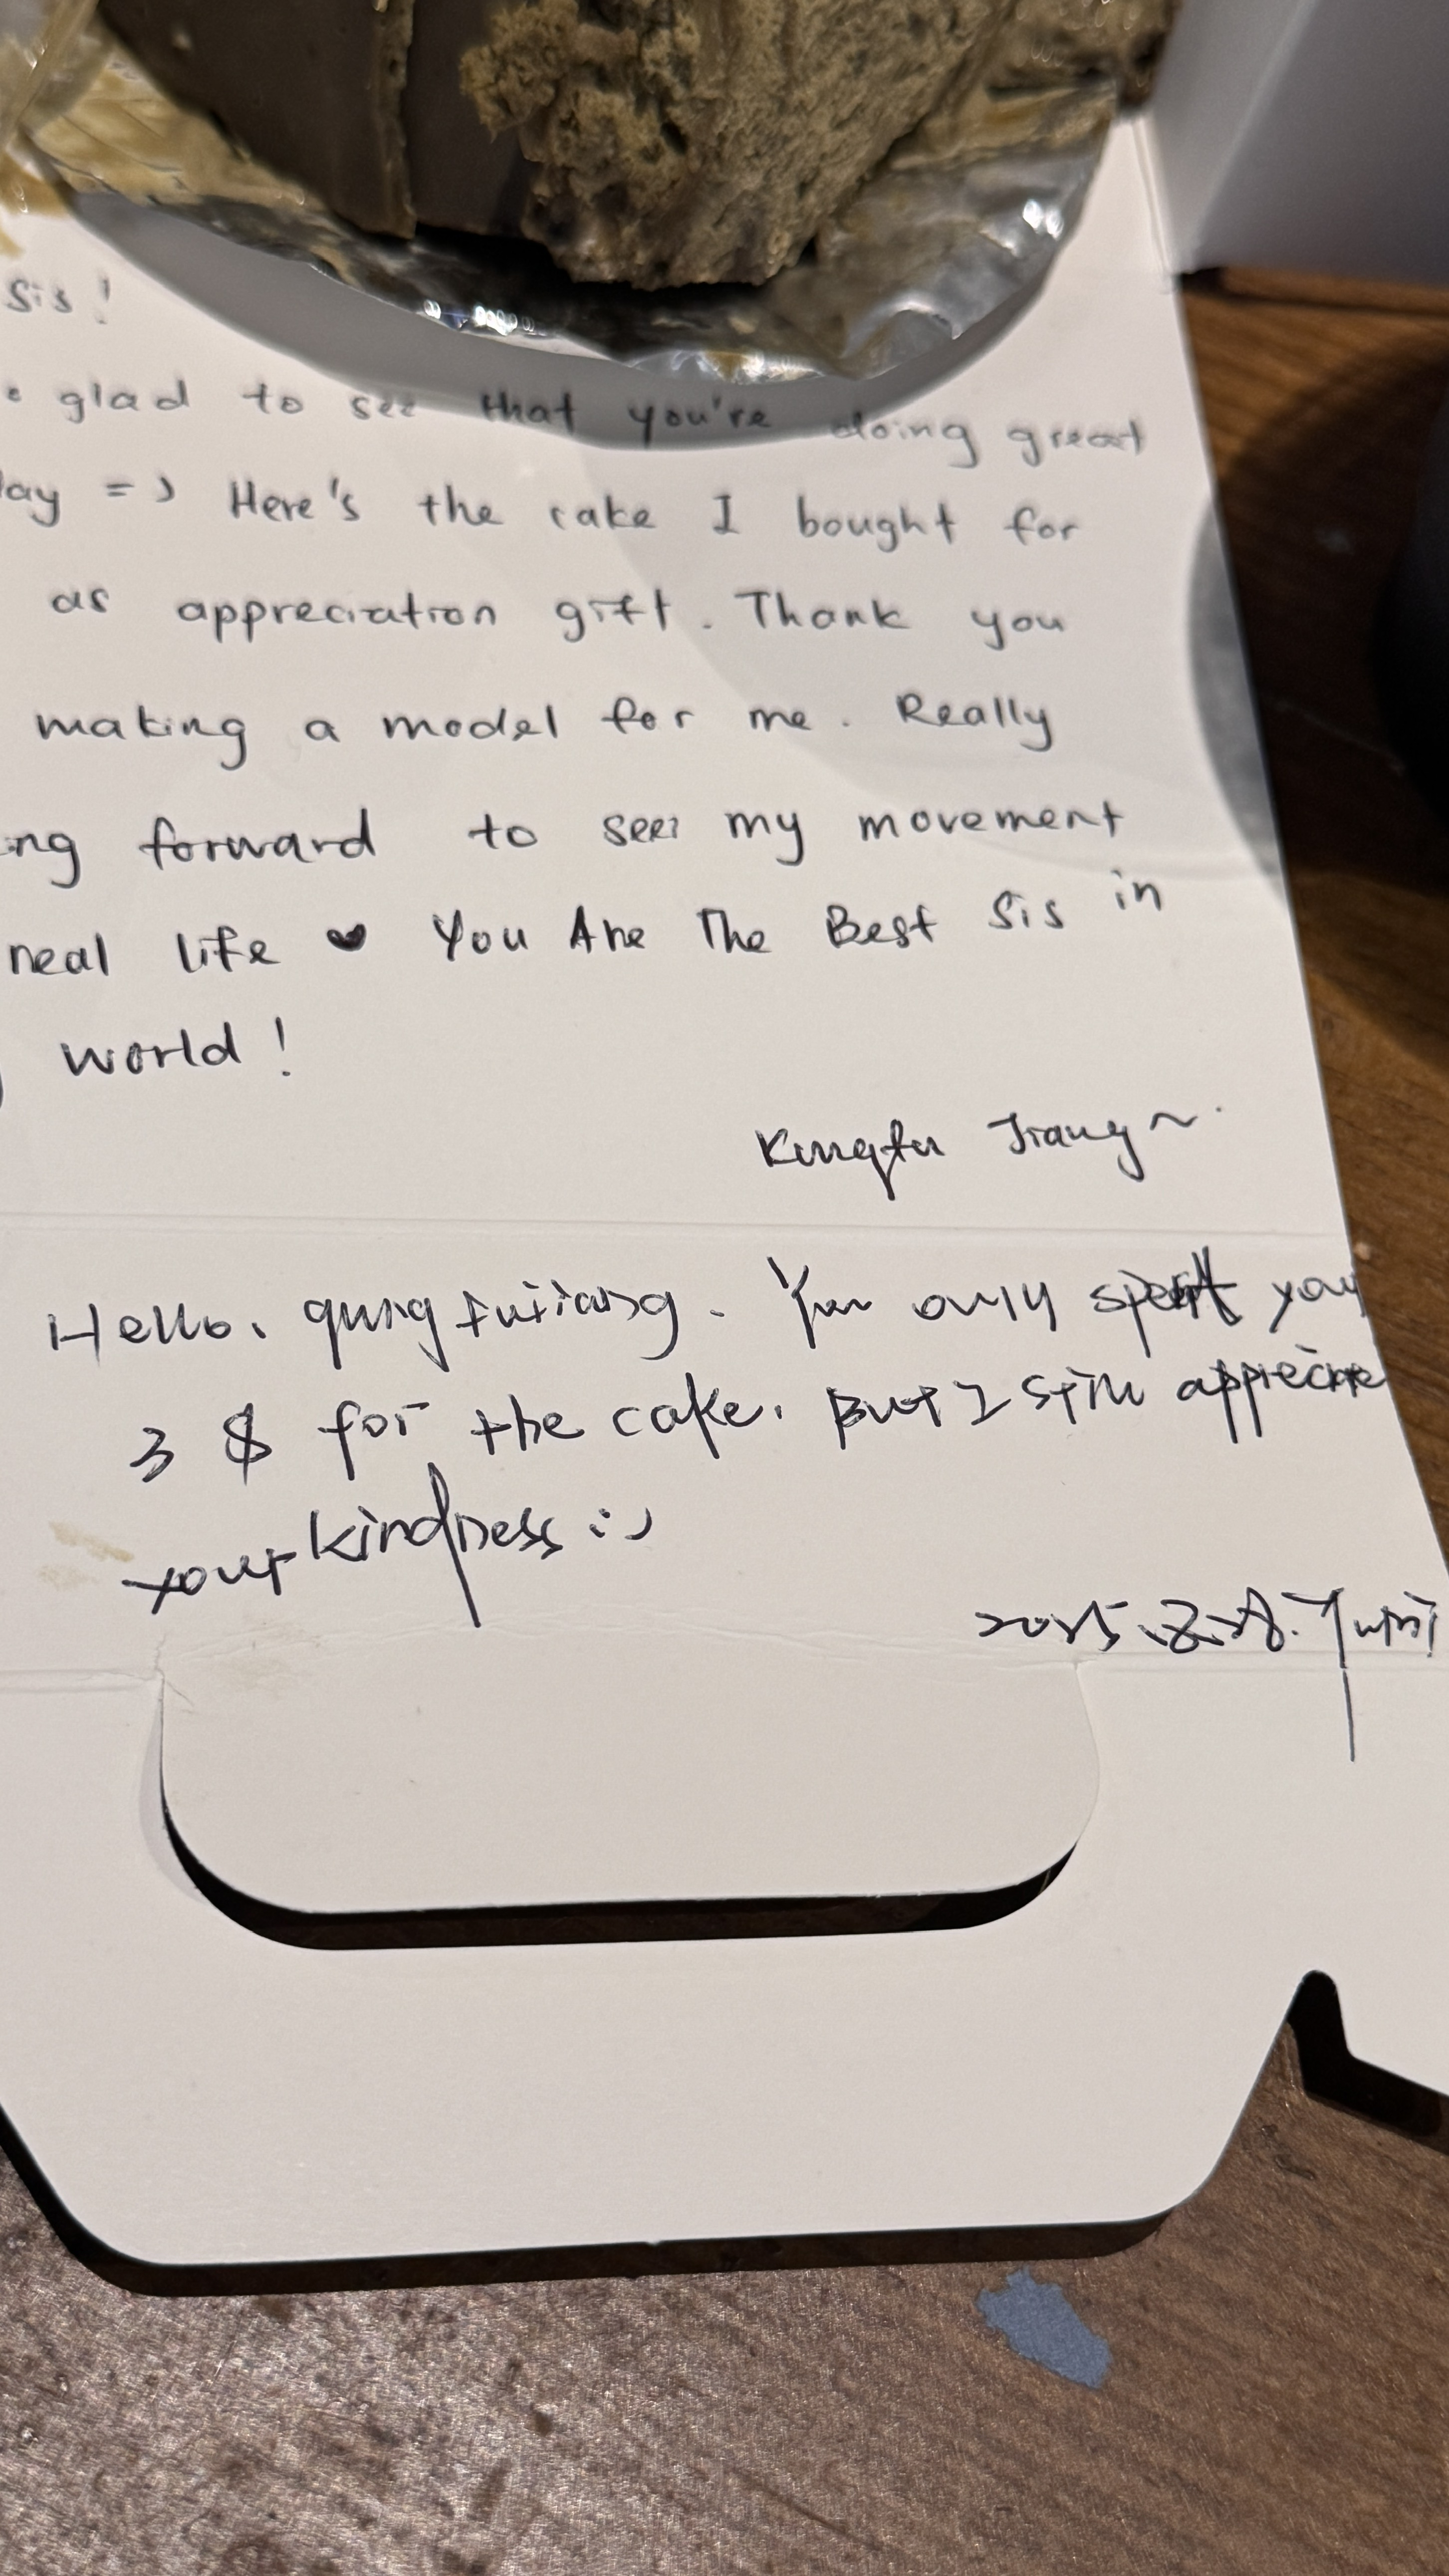 sis!
glad to see that you're doing great
ay =) Here's the cake I bought for
as appreciation gift. Thank you
making a model for me. Really
ng forward to see my movement
neal life ♥ You Are The Best Sis in
world!
Kungfu Jiang~
Hello, qungfujiang. You only spent your
3 $ for the cake. But I still appreciate
your kindness :)